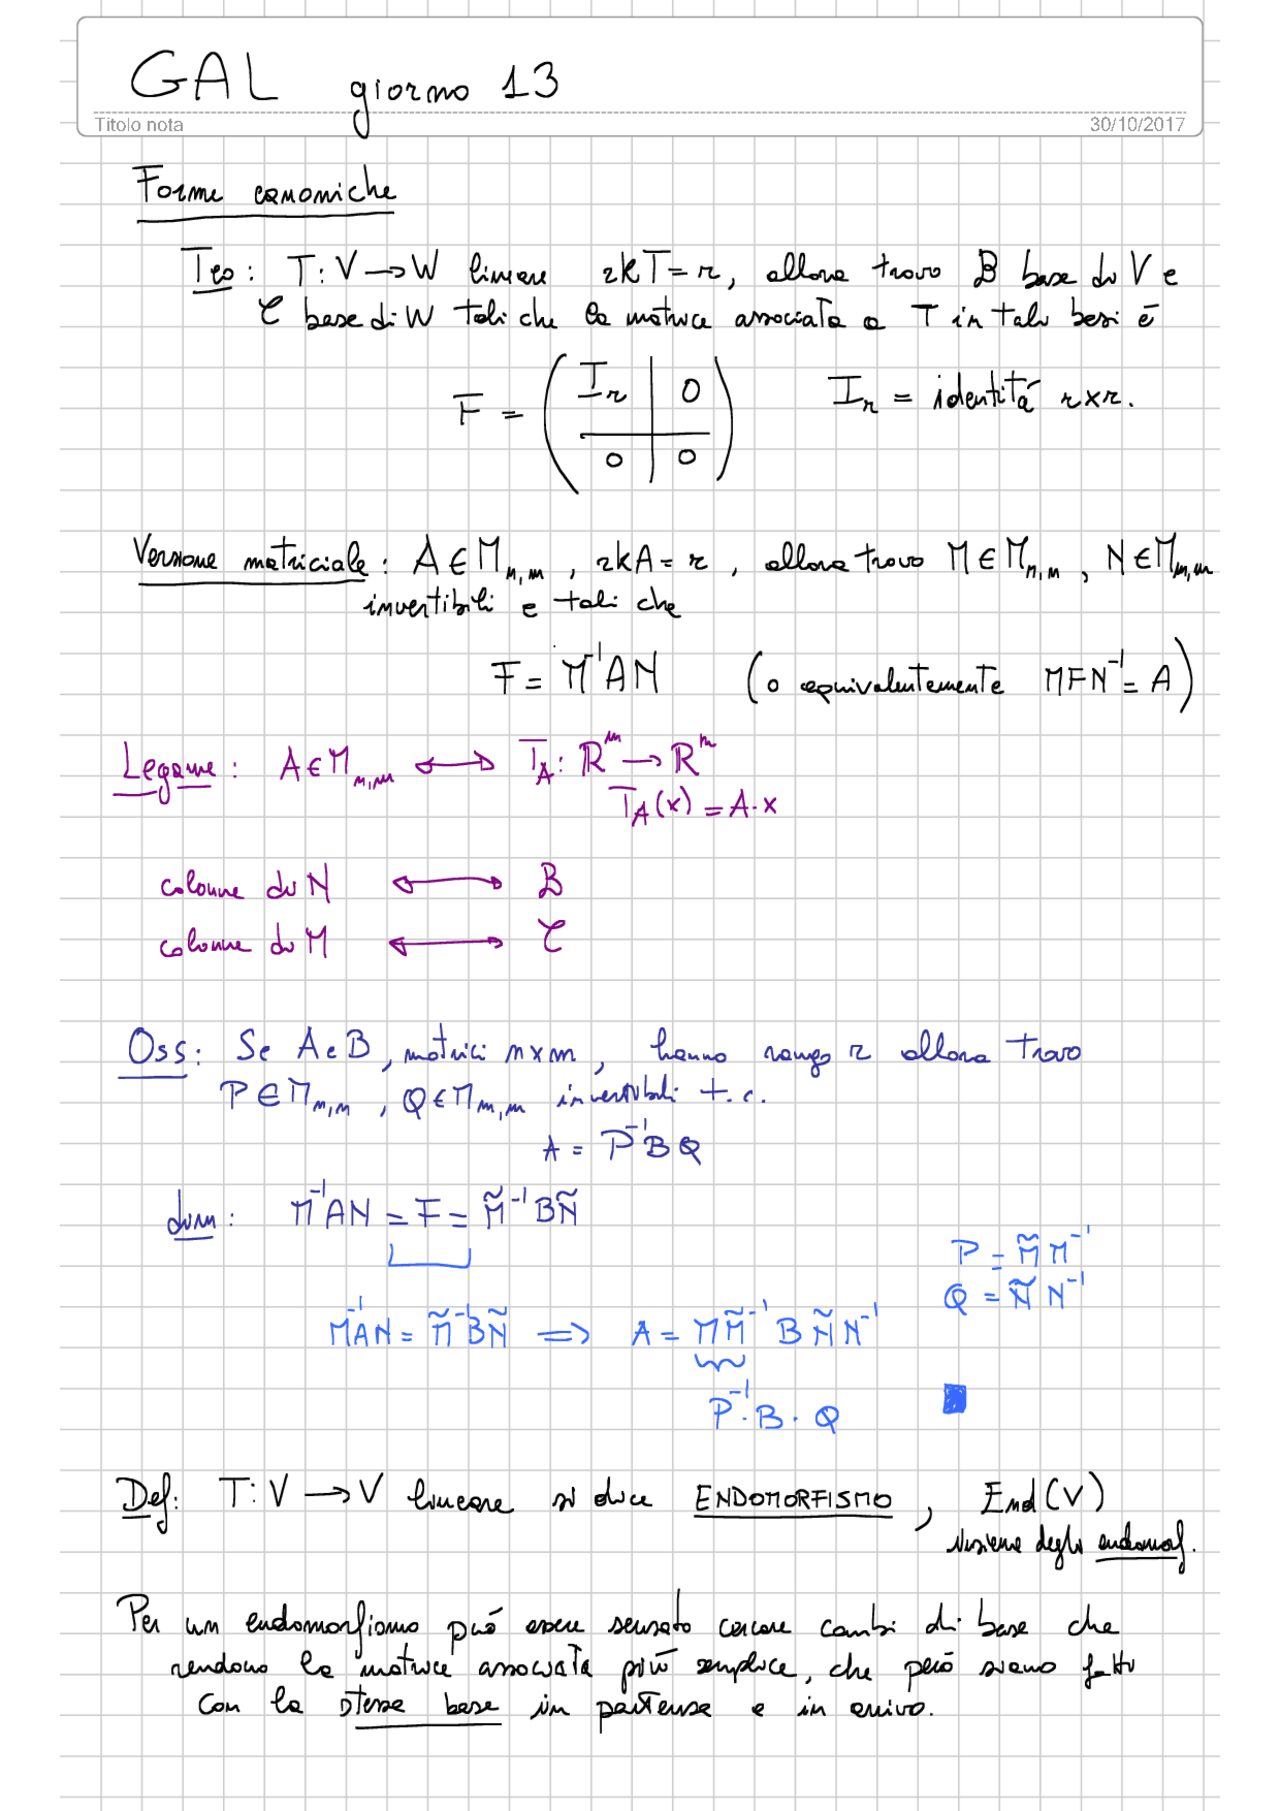 GAL giorno 13
Titolo nota 30/10/2017
Forme canoniche
Teo: T: V → W lineare rk T = r, allora trovo B base di V e
C base di W tali che la matrice associata a T in tali basi é
F = ( I_r | 0 ; 0 | 0 ) I_r = identitá r×r.
Versione matriciale: A ∈ M_{n,m}, rk A = r, allora trovo M ∈ M_{n,n}, N ∈ M_{m,m}
invertibili e tali che
F = M⁻¹AN (o equivalentemente MFN⁻¹ = A)
Legame: A ∈ M_{n,m} ↔ T_A: ℝ^m → ℝ^n
T_A(x) = A·x
colonne di N ↔ B
colonne di M ↔ C
Oss: Se A e B, matrici n×m, hanno rango r allora trovo
P ∈ M_{n,n}, Q ∈ M_{m,m} invertibili t.c.
A = P⁻¹BQ
dim: M⁻¹AN = F = M̃⁻¹BÑ
P = M̃M⁻¹
Q = ÑN⁻¹
M⁻¹AN = M̃⁻¹BÑ ⟹ A = MM̃⁻¹BÑN⁻¹
P⁻¹·B·Q
Def: T: V → V lineare si dice ENDOMORFISMO, End(V)
insieme degli endomof.
Per un endomorfismo puó essere sensato cercare cambi di base che
rendono la matrice associata piú semplice, che peró siano fatti
con la stessa base in partenza e in arrivo.